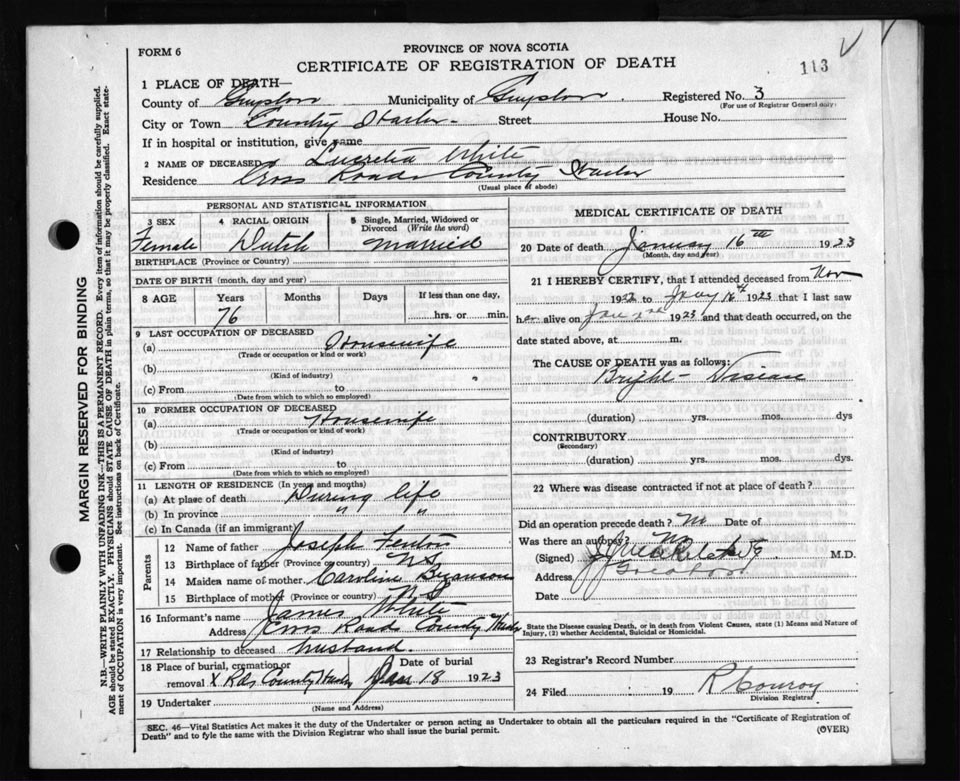 FORM 6
PROVINCE OF NOVA SCOTIA
CERTIFICATE OF REGISTRATION OF DEATH
113
1 PLACE OF DEATH—
County of Guysboro Municipality of Guysboro Registered No. 3
(For use of Registrar General only)
City or Town Country Harbor Street House No.
If in hospital or institution, give name
2 NAME OF DECEASED Lucretia White
Residence Cross Roads Country Harbor
(Usual place of abode)
PERSONAL AND STATISTICAL INFORMATION
3 SEX 4 RACIAL ORIGIN 5 Single, Married, Widowed or Divorced (Write the word)
Female Dutch Married
BIRTHPLACE (Province or Country)
DATE OF BIRTH (month, day and year)
8 AGE Years Months Days If less than one day,
76 hrs. or min.
9 LAST OCCUPATION OF DECEASED
(a) Housewife
(Trade or occupation or kind or work)
(b)
(Kind of industry)
(c) From to
(Date from which to which so employed)
10 FORMER OCCUPATION OF DECEASED
(a) Housewife
(Trade or occupation or kind of work)
(b)
(Kind of industry)
(c) From to
(Date from which to which so employed)
11 LENGTH OF RESIDENCE (In years and months)
(a) At place of death During life
(b) In province " "
(c) In Canada (if an immigrant)
Parents
12 Name of father Joseph Fenton
13 Birthplace of father (Province or country) N S
14 Maiden name of mother Caroline Bezanson
15 Birthplace of mother (Province or country) N S
16 Informant's name James White
Address Cross Roads Country Harbor
17 Relationship to deceased husband
18 Place of burial, cremation or removal X Rds Country Harbor Date of burial Jan 18 1923
19 Undertaker
(Name and Address)
MEDICAL CERTIFICATE OF DEATH
20 Date of death January 16th 1923
(Month, day and year)
21 I HEREBY CERTIFY, that I attended deceased from Nov
1922 to Jany 16th 1923 that I last saw
her alive on Jan 1923 and that death occurred, on the
date stated above, at m.
The CAUSE OF DEATH was as follows:
Bright
(duration) yrs. mos. dys
CONTRIBUTORY
(Secondary)
(duration) yrs. mos. dys.
22 Where was disease contracted if not at place of death?
Did an operation precede death? No Date of
Was there an autopsy? No
(Signed) M.D.
Address
Date
State the Disease causing Death, or in death from Violent Causes, state (1) Means and Nature of Injury, (2) whether Accidental, Suicidal or Homicidal.
23 Registrar's Record Number
24 Filed 19 R Conroy
Division Registrar
SEC. 46—Vital Statistics Act makes it the duty of the Undertaker or person acting as Undertaker to obtain all the particulars required in the "Certificate of Registration of
Death" and to file the same with the Division Registrar who shall issue the burial permit. (OVER)
MARGIN RESERVED FOR BINDING
N.B.—WRITE PLAINLY WITH UNFADING INK—THIS IS A PERMANENT RECORD. Every item of information should be carefully supplied.
AGE should be stated EXACTLY. PHYSICIANS should STATE CAUSE OF DEATH in plain terms, so that it may be properly classified. Exact statement
of OCCUPATION is very important. See instructions on back of Certificate.